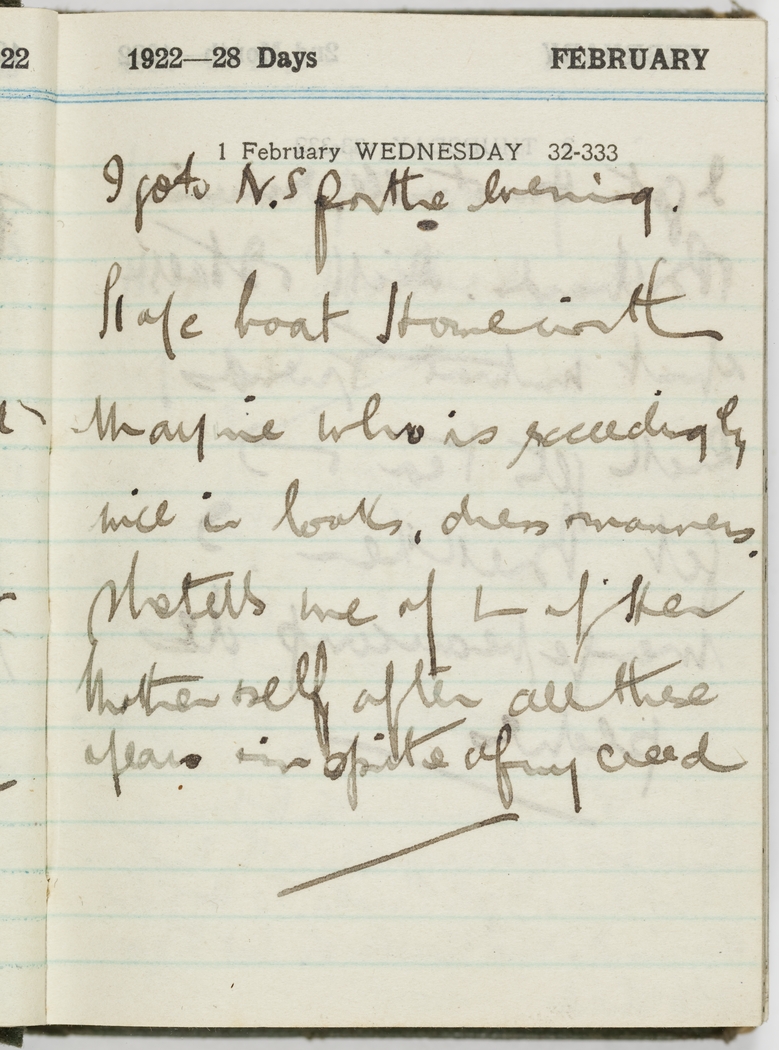 22
1922—28 Days FEBRUARY
1 February WEDNESDAY 32-333
I go to N.S for the Evening.
boat Home with
Mayne who is exceedingly
nice in looks, dress manners.
She tells me of L of Her
Mother self after all these
years in spite of my creed